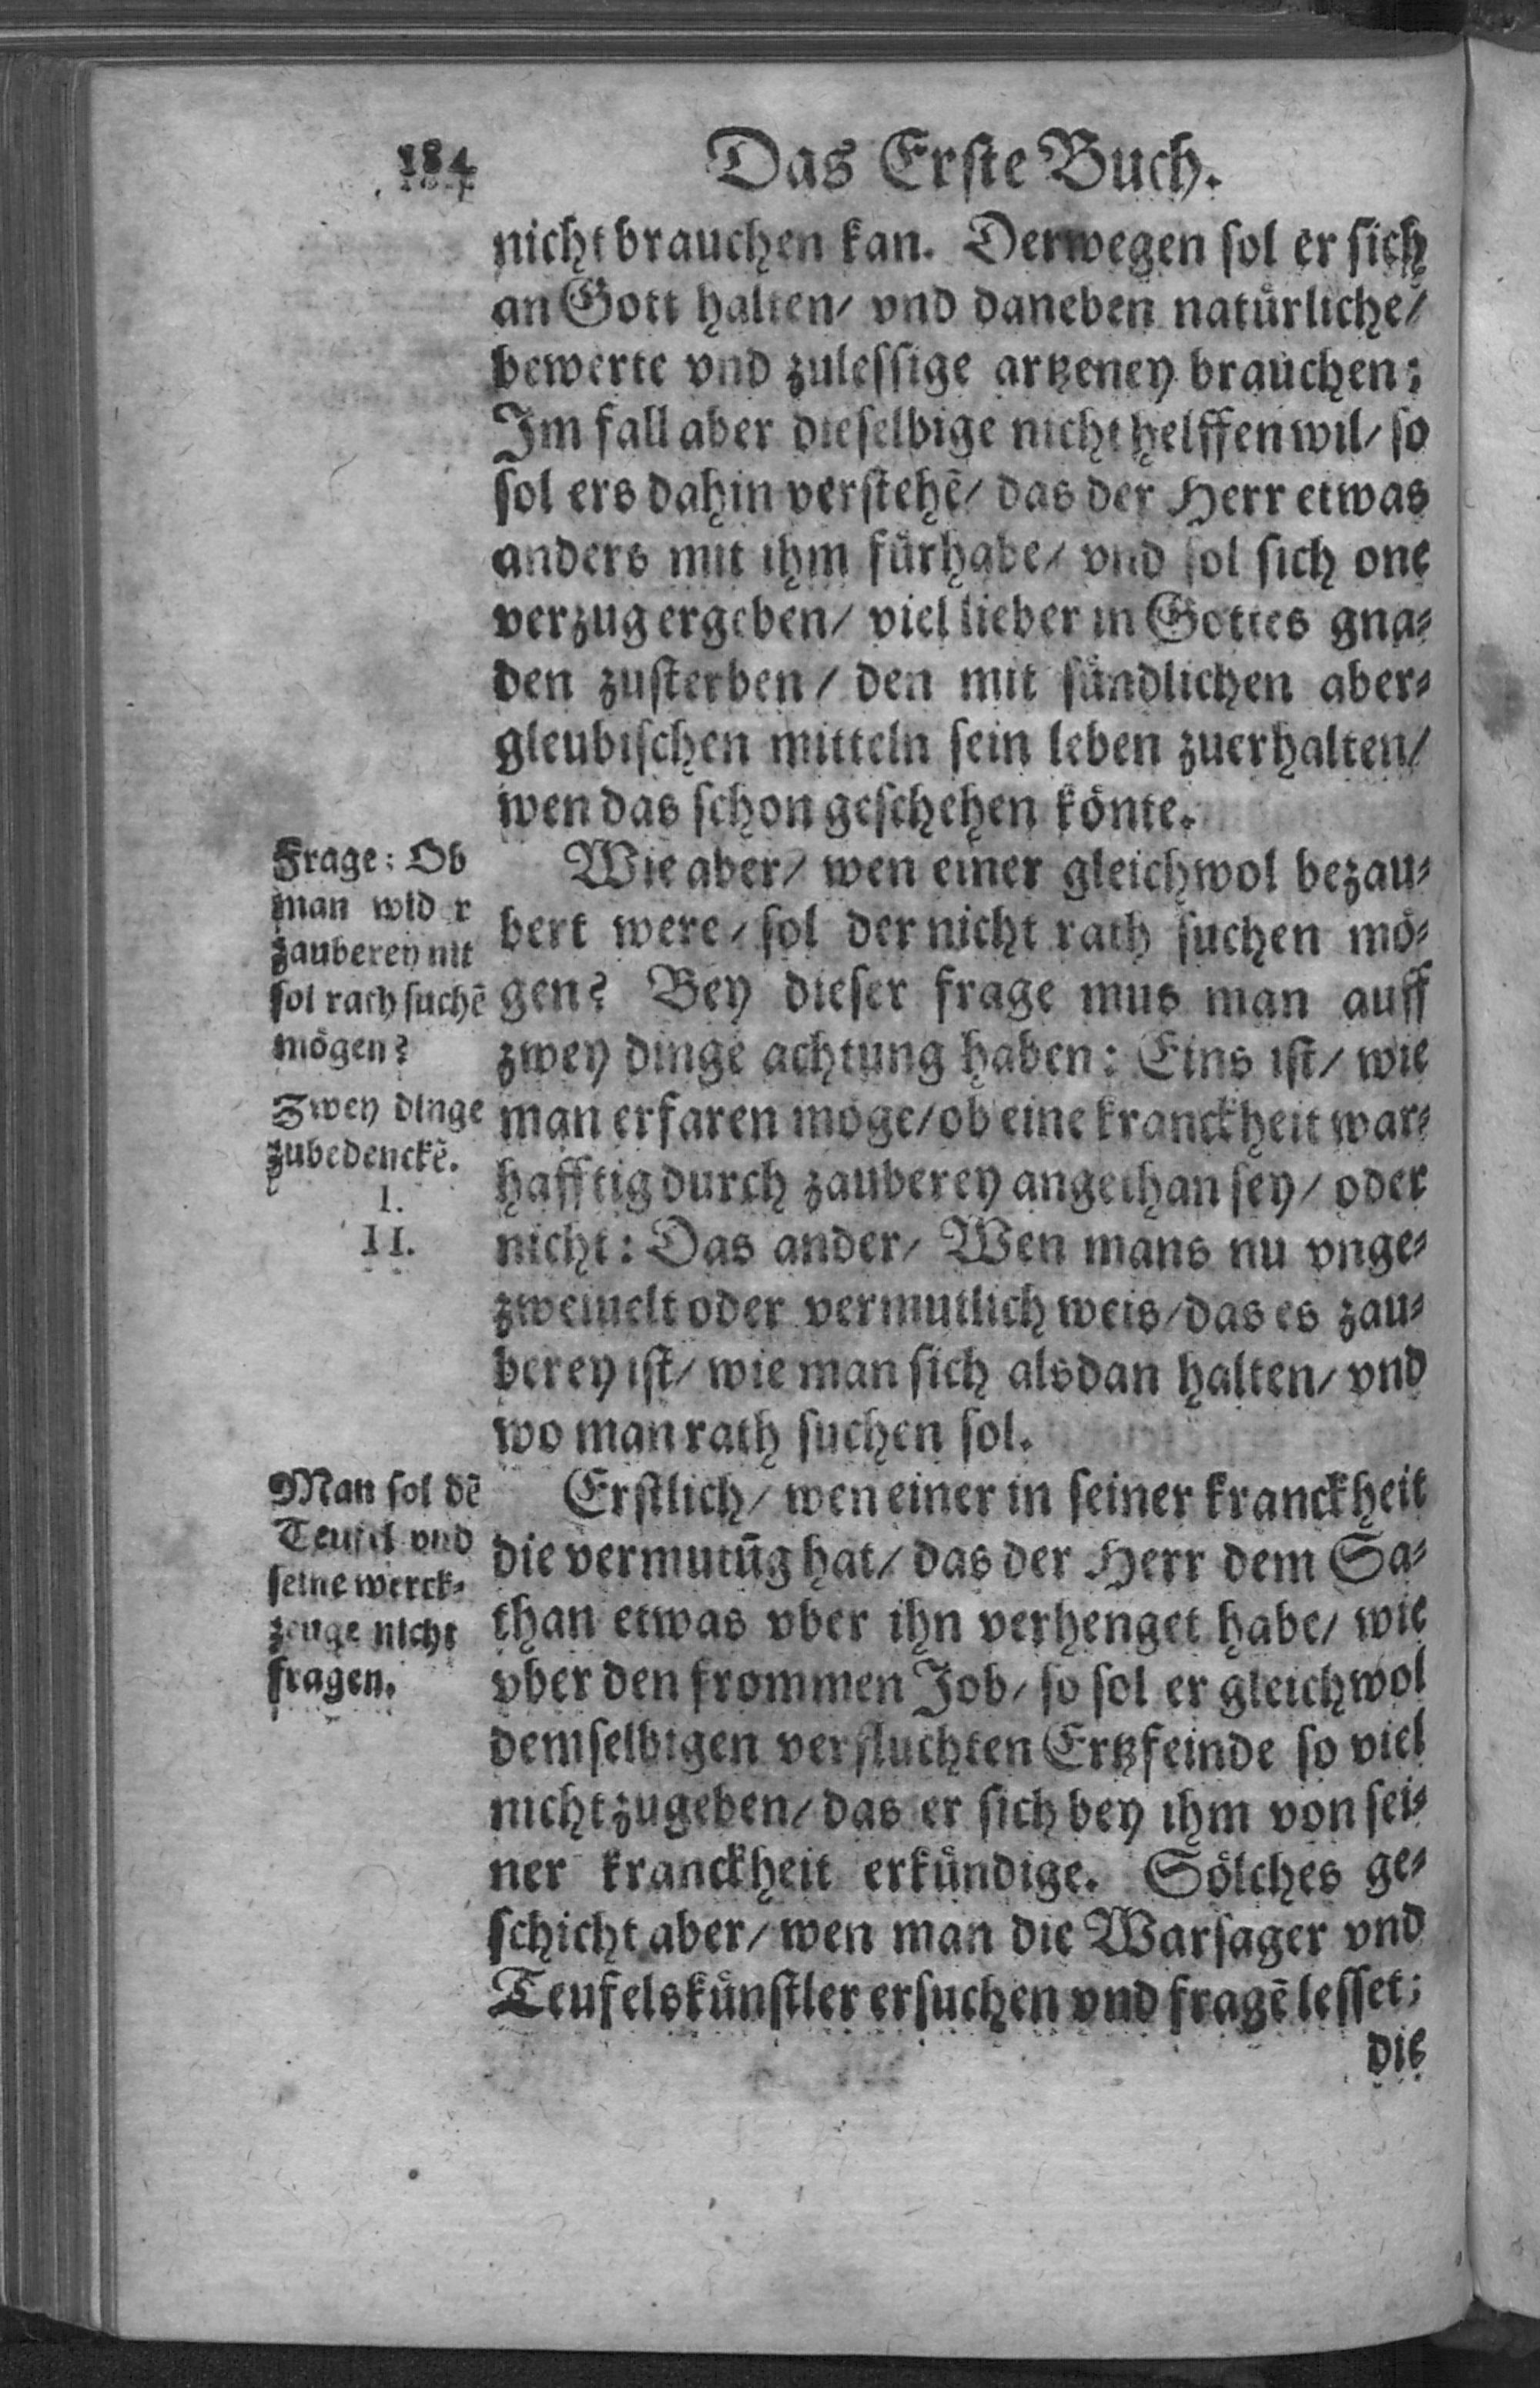 184
Das Erste Buch.
nicht brauchen kan. Derwegen sol er sich
an Gott halten/ vnd daneben natürliche/
bewerte vnd zulessige artzeney brauchen:
Im fall aber dieselbige nicht helffen wil/ so
sol ers dahin verstehẽ/ das der Herr etwas
anders mit ihm fürhabe/ vnd sol sich one
verzug ergeben/ viel lieber in Gottes gna-
den zusterben/ den mit sündlichen aber-
gleubischen mitteln sein leben zuerhalten/
wen das schon geschehen könte.
Frage: Ob
man wider
zauberey nit
sol rath suchẽ
mögen?
Zwey dinge
zubedenckẽ.
I.
II.
Wie aber/ wen einer gleichwol bezau-
bert were/ sol der nicht rath suchen mö-
gen? Bey dieser frage mus man auff
zwey dinge achtung haben: Eins ist/ wie
man erfaren möge/ ob eine kranckheit war-
hafftig durch zauberey angethan sey/ oder
nicht: Das ander/ Wen mans nu vnge-
zweiuelt oder vermutlich weis/ das es zau-
berey ist/ wie man sich alsdan halten/ vnd
wo man rath suchen sol.
Man sol dẽ
Teufel vnd
seine werck-
zeuge nicht
fragen.
Erstlich/ wen einer in seiner kranckheit
die vermutũg hat/ das der Herr dem Sa-
than etwas vber ihn verhenget habe/ wie
vber den frommen Job/ so sol er gleichwol
demselbigen verfluchten Ertzfeinde so viel
nicht zugeben/ das er sich bey ihm von sei-
ner kranckheit erkündige. Sölches ge-
schicht aber/ wen man die Warsager vnd
Teufelskünstler ersuchen vnd fragẽ lesset:
die